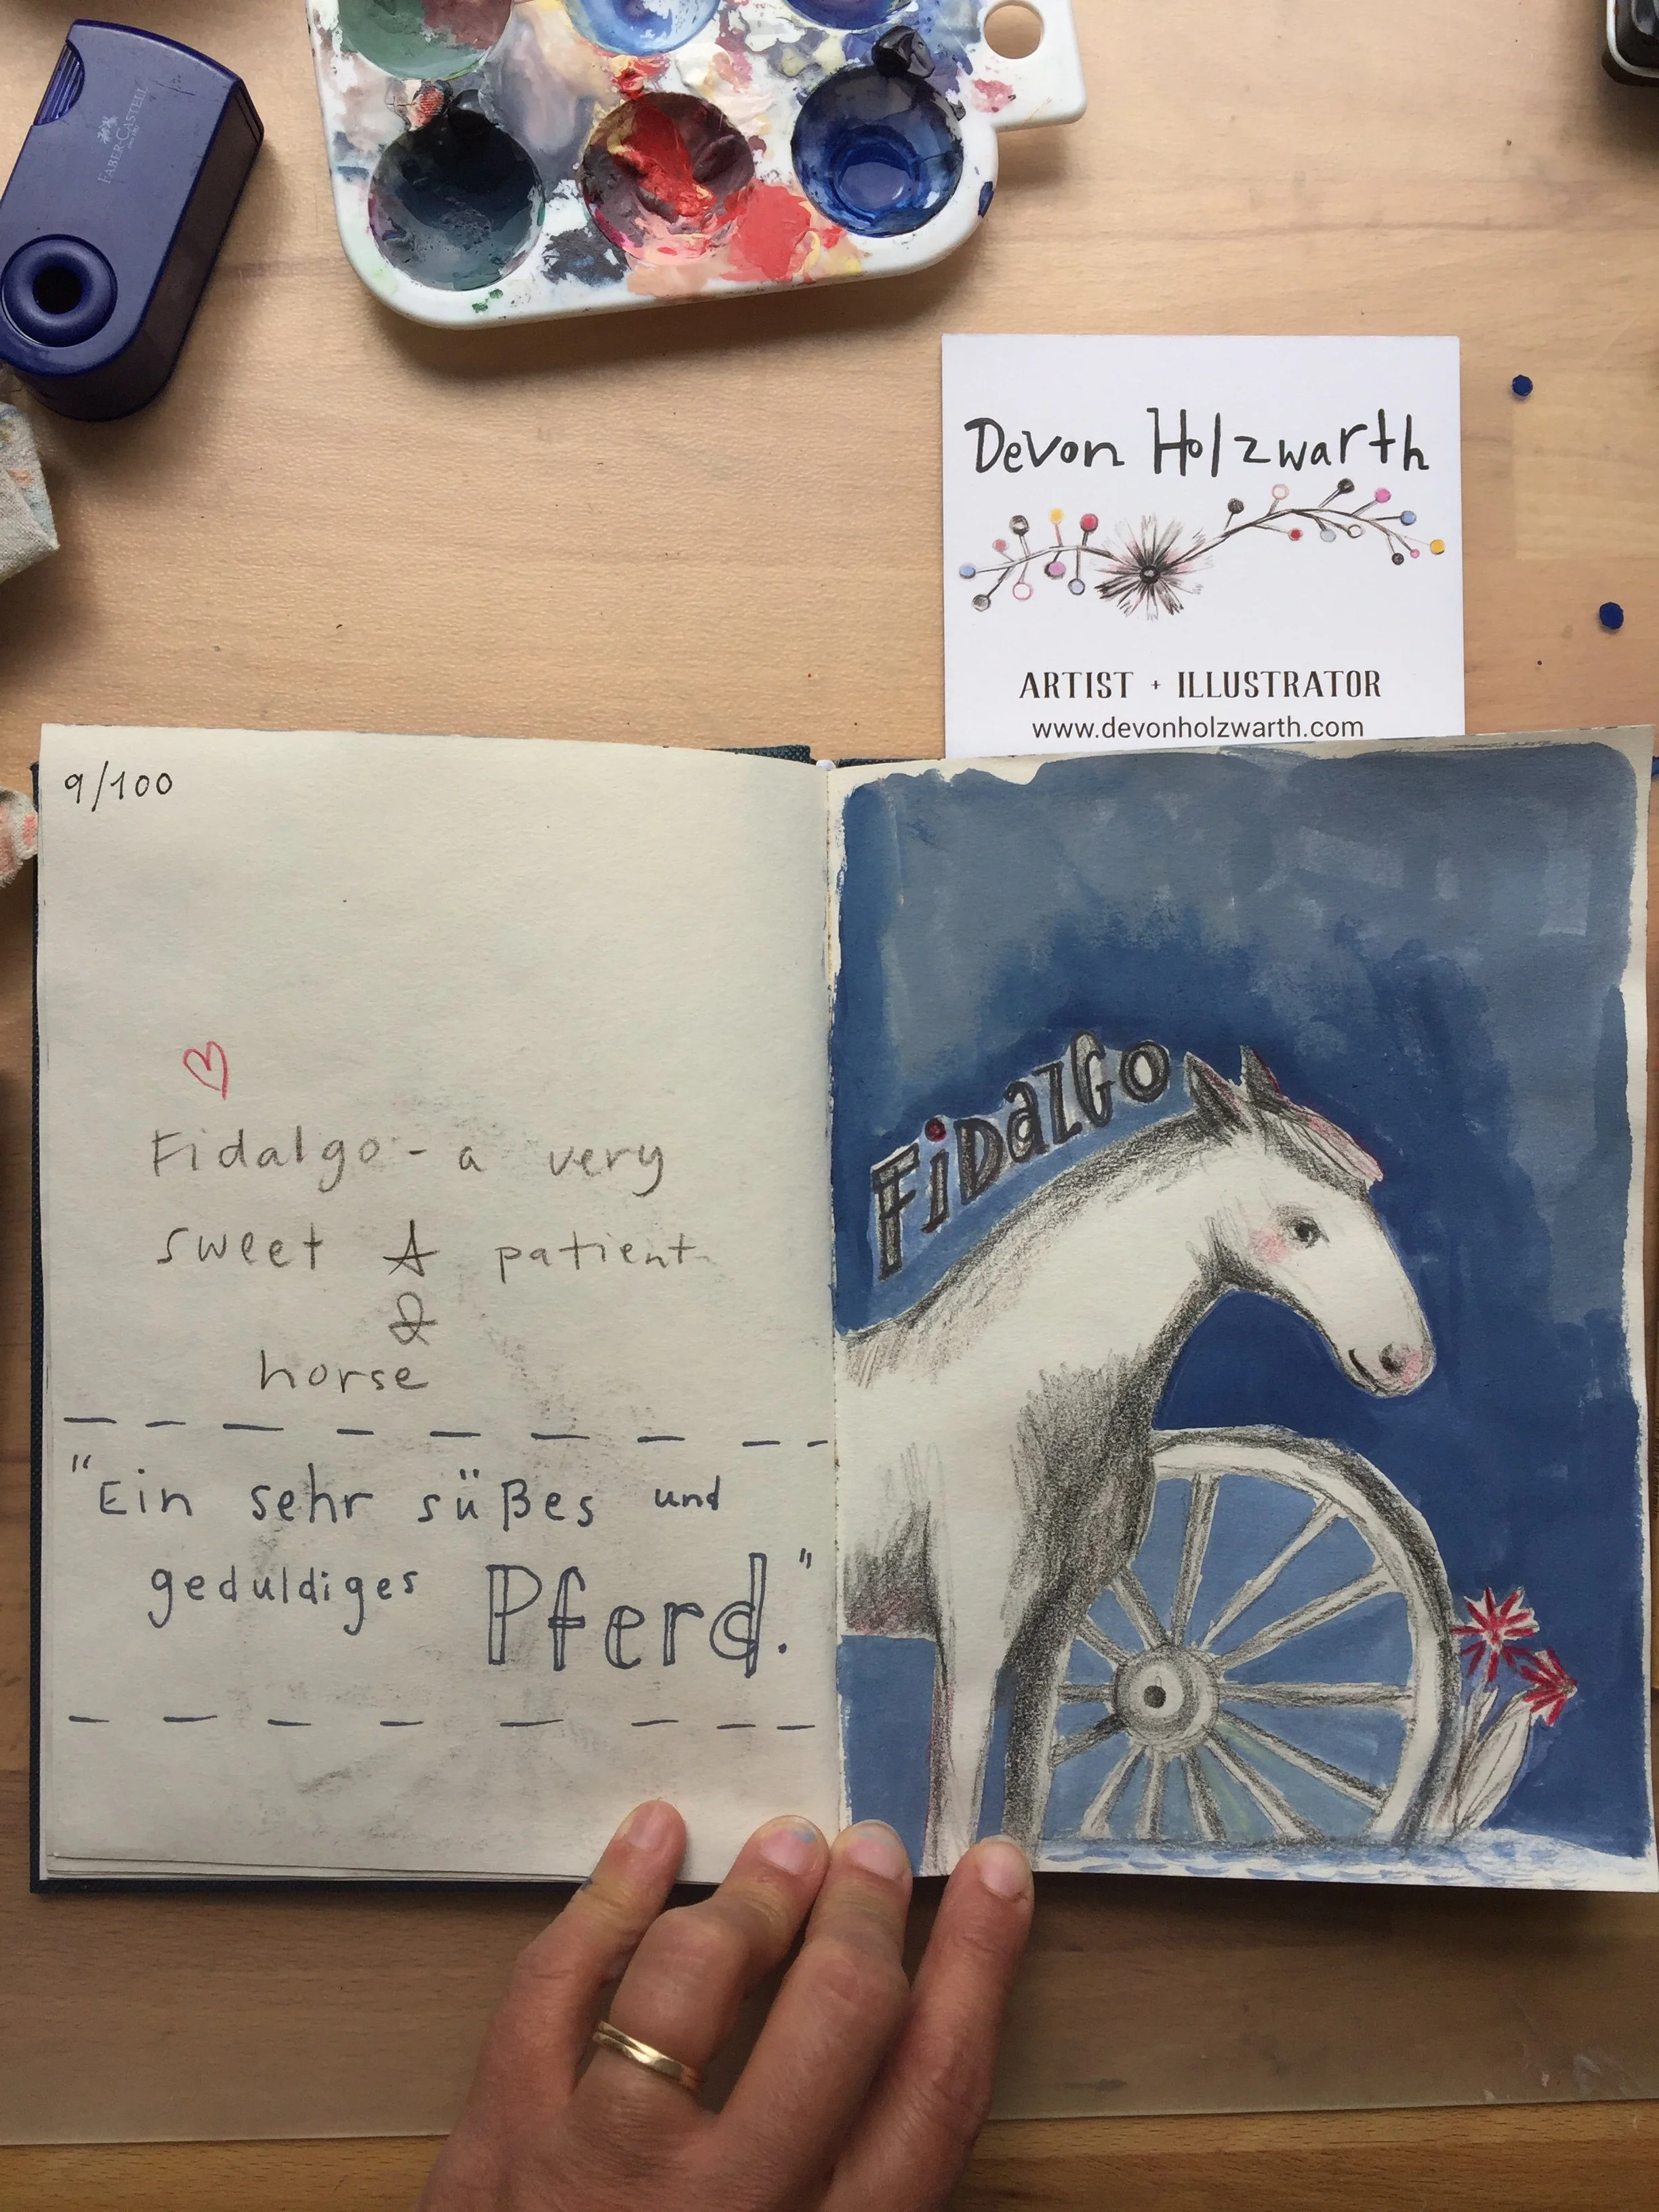 FABER-CASTELL
Devon Holzwarth
ARTIST + ILLUSTRATOR
www.devonholzwarth.com
9/100
Fidalgo - a very
sweet & patient
horse
"Ein sehr süßes und
geduldiges Pferd."
FiDalGo